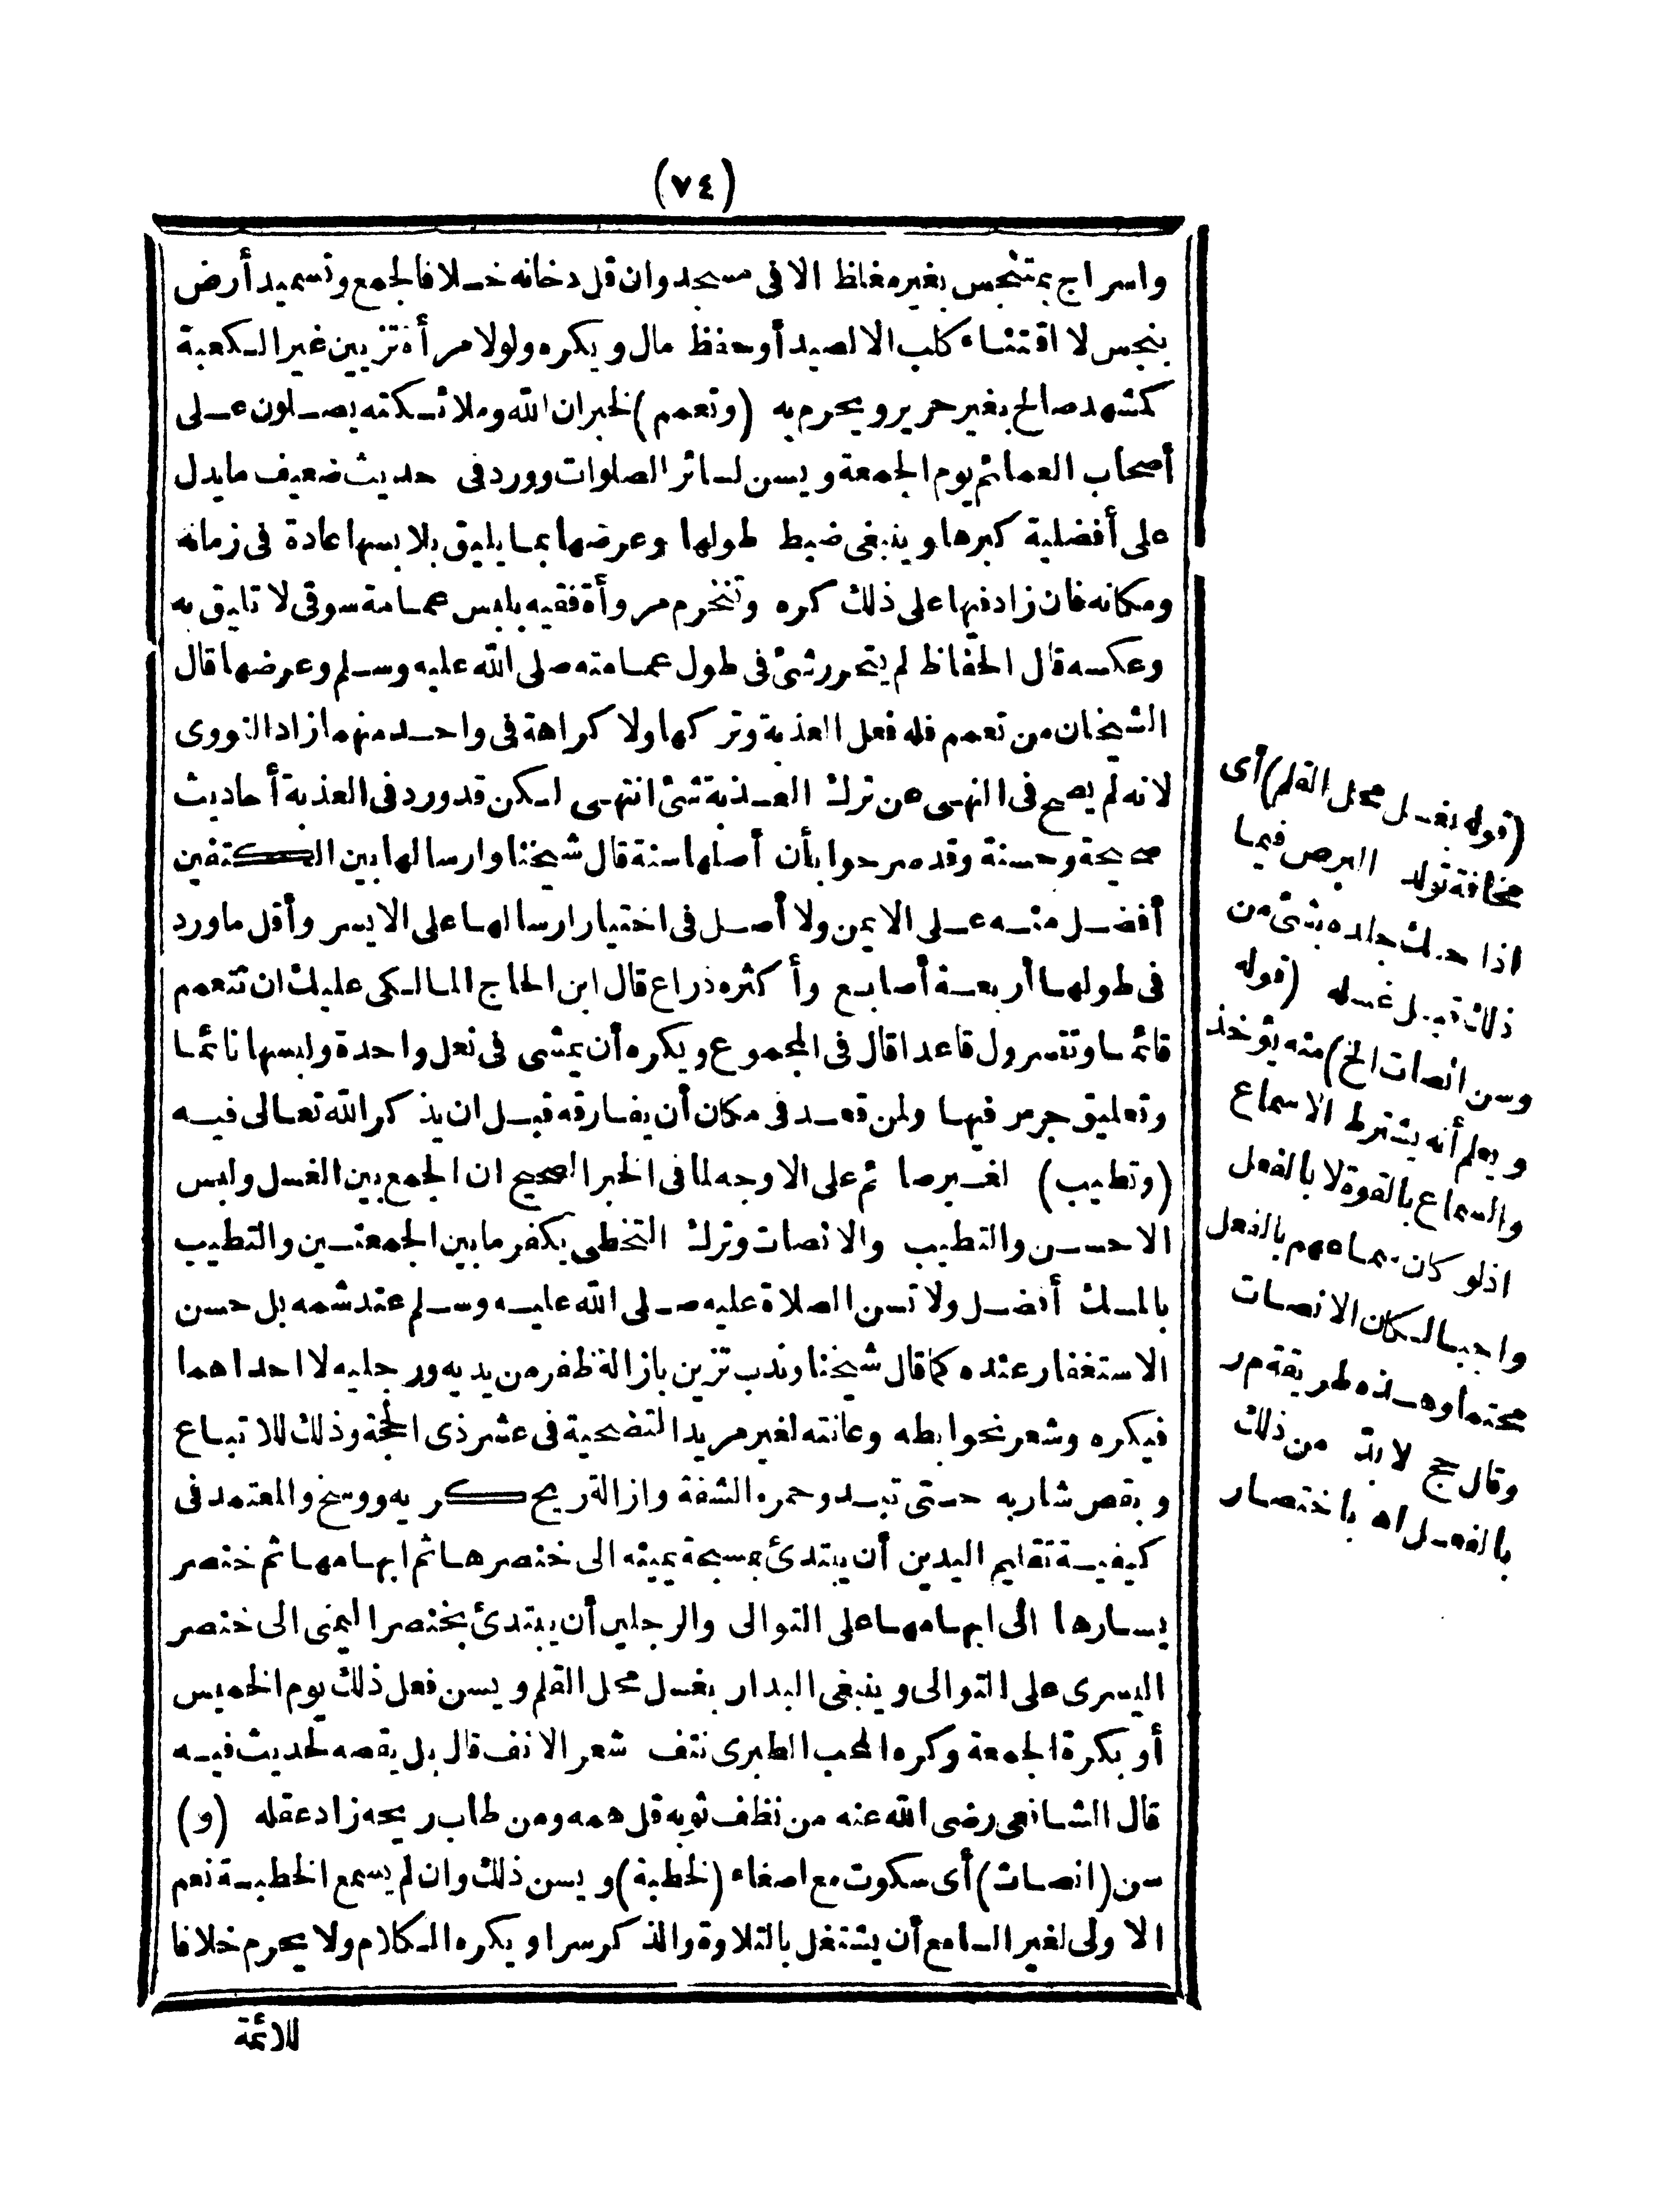 (٧٤)
واسراج بمتنجس بغير مغلظ الا فى مسجد وان قل دخانه خلافا لجمع وتسميد أرض
بنجس لا اقتناء كلب الا لصيد أو حفظ مال ويكره ولو لامرأة تزيين غير الكعبة
كمشهد صالح بغير حرير ويحرم به (وتعمم) لخبران الله وملائكته يصلون على
أصحاب العمائم يوم الجمعة ويسن لسائر الصلوات وورد فى حديث ضعيف ما يدل
على أفضلية كبرها وينبغى ضبط طولها وعرضها بما يليق بلابسها عادة فى زمانه
ومكانه فان زاد فيها على ذلك كره وتنخرم مروأة فقيه بلبس عمامة سوقى لا تليق به
وعكسه قال الحفاظ لم يتحرر شئ فى طول عمامته صلى الله عليه وسلم وعرضها قال
الشيخان من تعمم فله فعل العذبة وتركها ولا كراهة فى واحد منهما زاد النووى
لانه لم يصح فى النهى عن ترك العذبة شئ انتهى لكن قد ورد فى العذبة أحاديث
صحيحة وحسنة وقد صرحوا بأن أصلها سنة قال شيخنا وارسالها بين الكتفين
أفضل منه على الايمن ولا أصل فى اختيار ارسالها على الايسر وأقل ما ورد
فى طولها أربعة أصابع وأكثره ذراع قال ابن الحاج المالكى عليك ان تتعمم
قائما وتتسرول قاعدا قال فى المجموع ويكره أن يمشى فى نعل واحدة ولبسها نائما
وتعليق جرس فيها ولمن قعد فى مكان أن يفارقه قبل ان يذكر الله تعالى فيه
(وتطيب) لغير صائم على الاوجه لما فى الخبر الصحيح ان الجمع بين الغسل ولبس
الاحسن والتطيب والانصات وترك التخطى يكفر ما بين الجمعتين والتطيب
بالمسك أفضل ولا تسن الصلاة عليه صلى الله عليه وسلم عند شمه بل حسن
الاستغفار عنده كما قال شيخنا وندب تزين بازالة ظفر من يديه ورجليه لا احداهما
فيكره وشعر نحو ابطه وعانته لغير مريد التضحية فى عشر ذى الحجة وذلك للاتباع
وبقص شاربه حتى تبدو حمرة الشفة وازالة ريح كريه ووسخ والمعتمد فى
كيفية تقليم اليدين أن يبتدئ بمسبحة يمينه الى خنصرها ثم ابهامها ثم خنصر
يسارها الى ابهامها على التوالى والرجلين أن يبتدئ بخنصر اليمنى الى خنصر
اليسرى على التوالى وينبغى البدار بغسل محل القلم ويسن فعل ذلك يوم الخميس
أو بكرة الجمعة وكره المحب الطبرى نتف شعر الانف قال بل يقصه لحديث فيه
قال الشافعى رضى الله عنه من نظف ثوبه قل همه ومن طاب ريحه زاد عقله (و)
سن (انصات) أى سكوت مع اصغاء (لخطبة) ويسن ذلك وان لم يسمع الخطبة نعم
الاولى لغير السامع أن يشتغل بالتلاوة والذكر سرا ويكره الكلام ولا يحرم خلافا
للائمة
(قوله بغسل محل القلم) أى
مخافة تولد البرص فيما
اذا حك جلده بشئ من
ذلك قبل غسله (قوله
وسن انصات الخ) منه يؤخذ
ويعلم أنه يشترط الاسماع
والسماع بالقوة لا بالفعل
اذلو كان سماعهم بالفعل
واجبا لكان الانصات
محتما وهذه طريقة م ر
وقال حج لا بد من ذلك
بالفعل اه باختصار